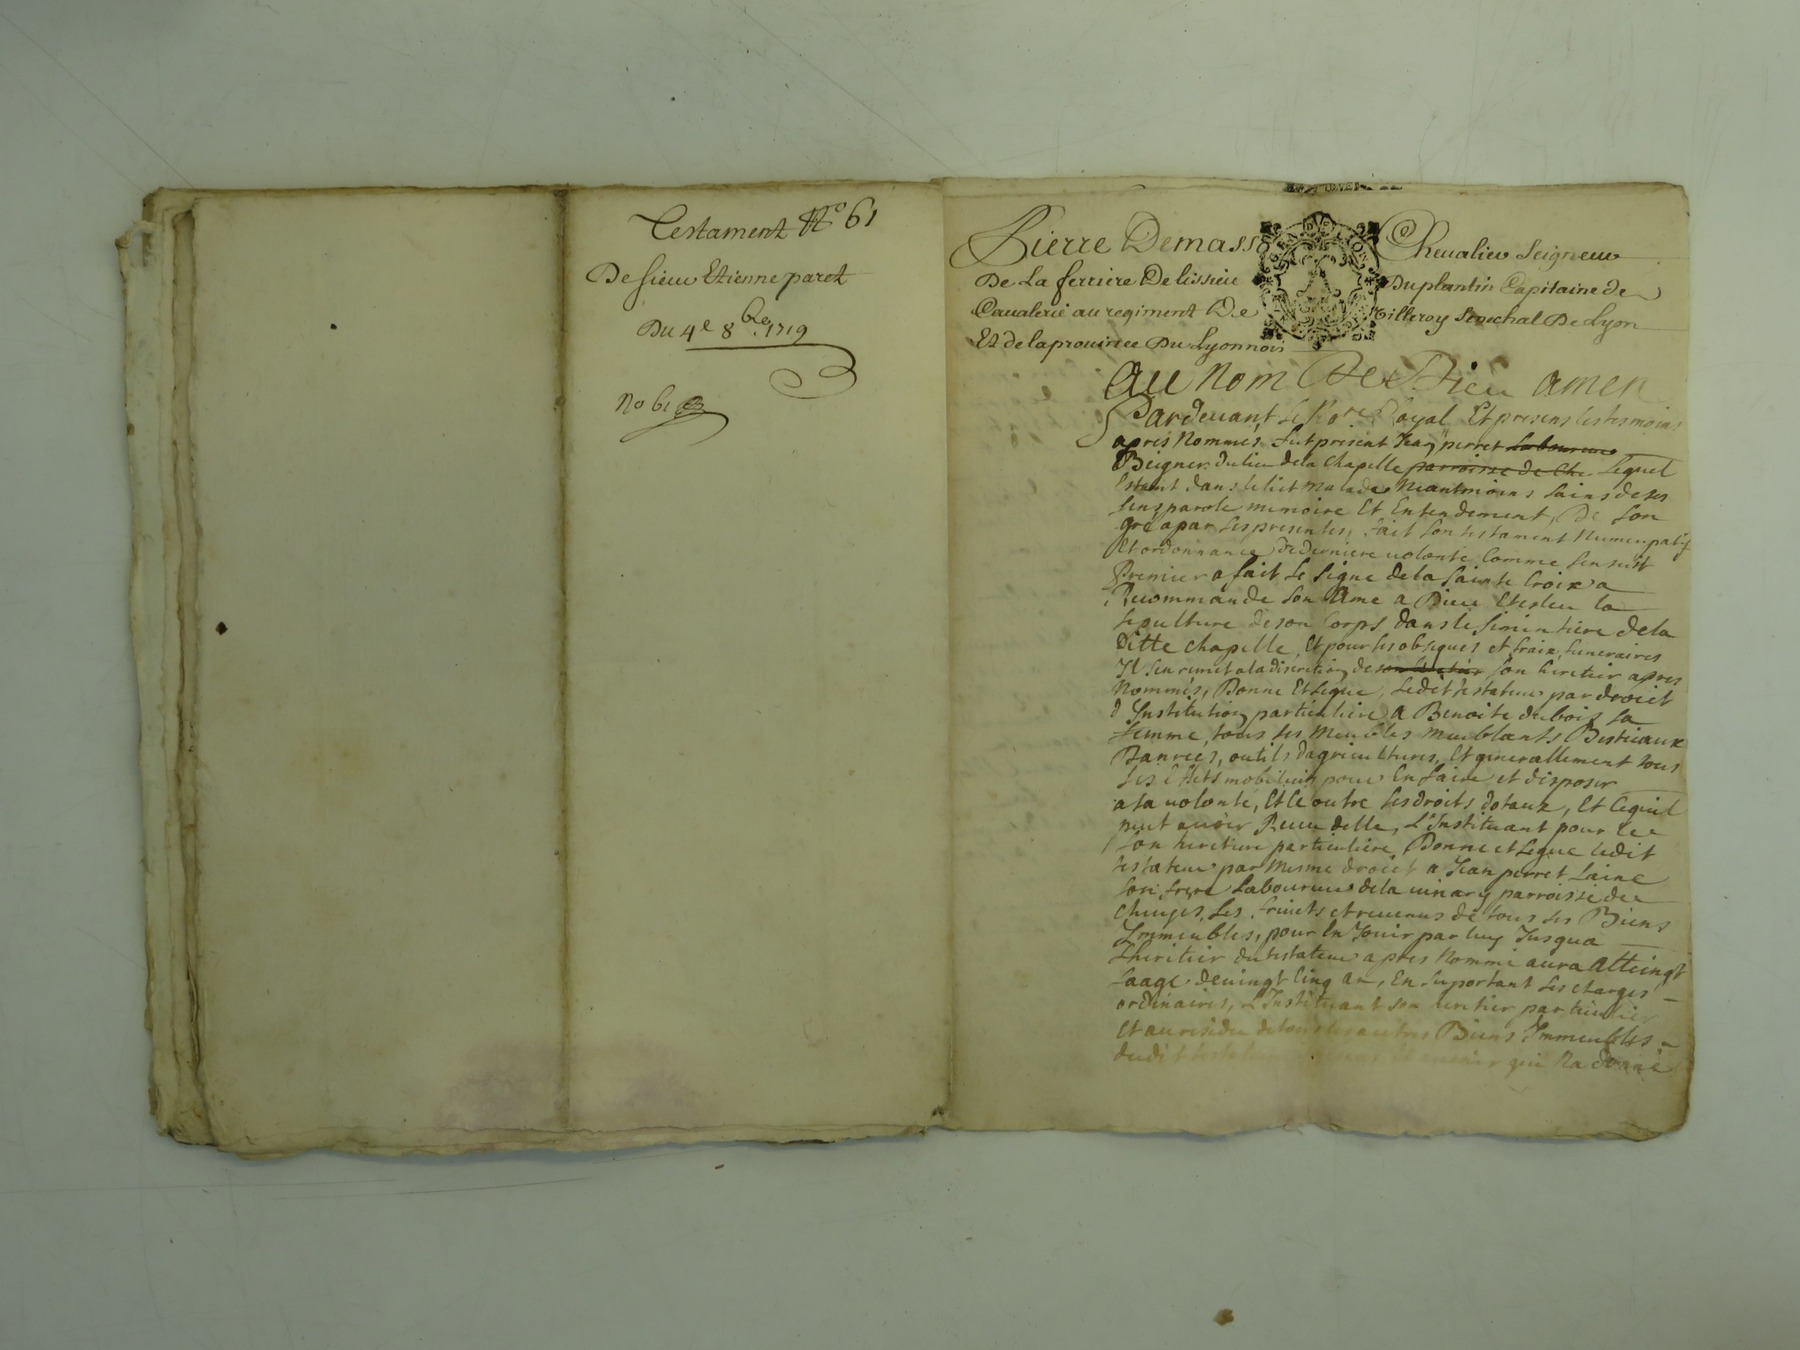 Testament No 61
De sieur Etienne paret
Du 4e 8bre 1719
No 61
Pierre Demasso Chevalier Seigneur
De La ferriere De lissieu Duplantin Capitaine de
Cavalerie au regiment De Villeroy Senechal De Lyon
Et de la province Du Lyonnois
Au Nom De Dieu amen
Pardevant le Nore Royal Et presens les tesmoins
apres Nommés fut present Jean perret Laboureur
du lieu dela Chapelle parroisse de Che Lequel
Estant dans le lict malade Neantmoins sains de ses
sens parole memoire Et Entendement, De son
gré a par ses presentes, fait son testament Nuncupatif
Et ordonnance de derniere volonté Comme sensuit
Premier a fait le signe dela sainte Croix a
Recommande son Ame a Dieu Et esleu la
sepulture de son Corps dans le simentiere dela
Ditte chapelle, Et pour ses obseques et fraix funeraires
Il sen remet a la discretion de son heritier apres
Nommés, Donne Et Legue, Ledit testateur par droict
d Institution particuliere a Benoite dubois sa
femme, tous ses Meubles meublants Bestiaux
Danrées, outils dagricultures, Et generallement tous
ses Effets mobiliers pour En faire et disposer
a sa volonté, Et Ce outre ses droits dotaux, Et Cequil
peut avoir Receu delle, L'Instituant pour Ce
son heritiere particuliere, Donne et Legue ledit
testateur par mesme droict a Jean perret Laine
son frere Laboureur dela vinary parroisse de
Les fruits et revenus de tous ses Biens
Immeubles, pour En Jouir par luy Jusqua
Lheritier du testateur apres Nommé aura atteingt
Laage de vingt Cinq an, En suportant les charges
ordinaires, L'Instituant son heritier particulier
Et au residu de tous les autres Biens Immeubles
dudit testateur qui Na donné